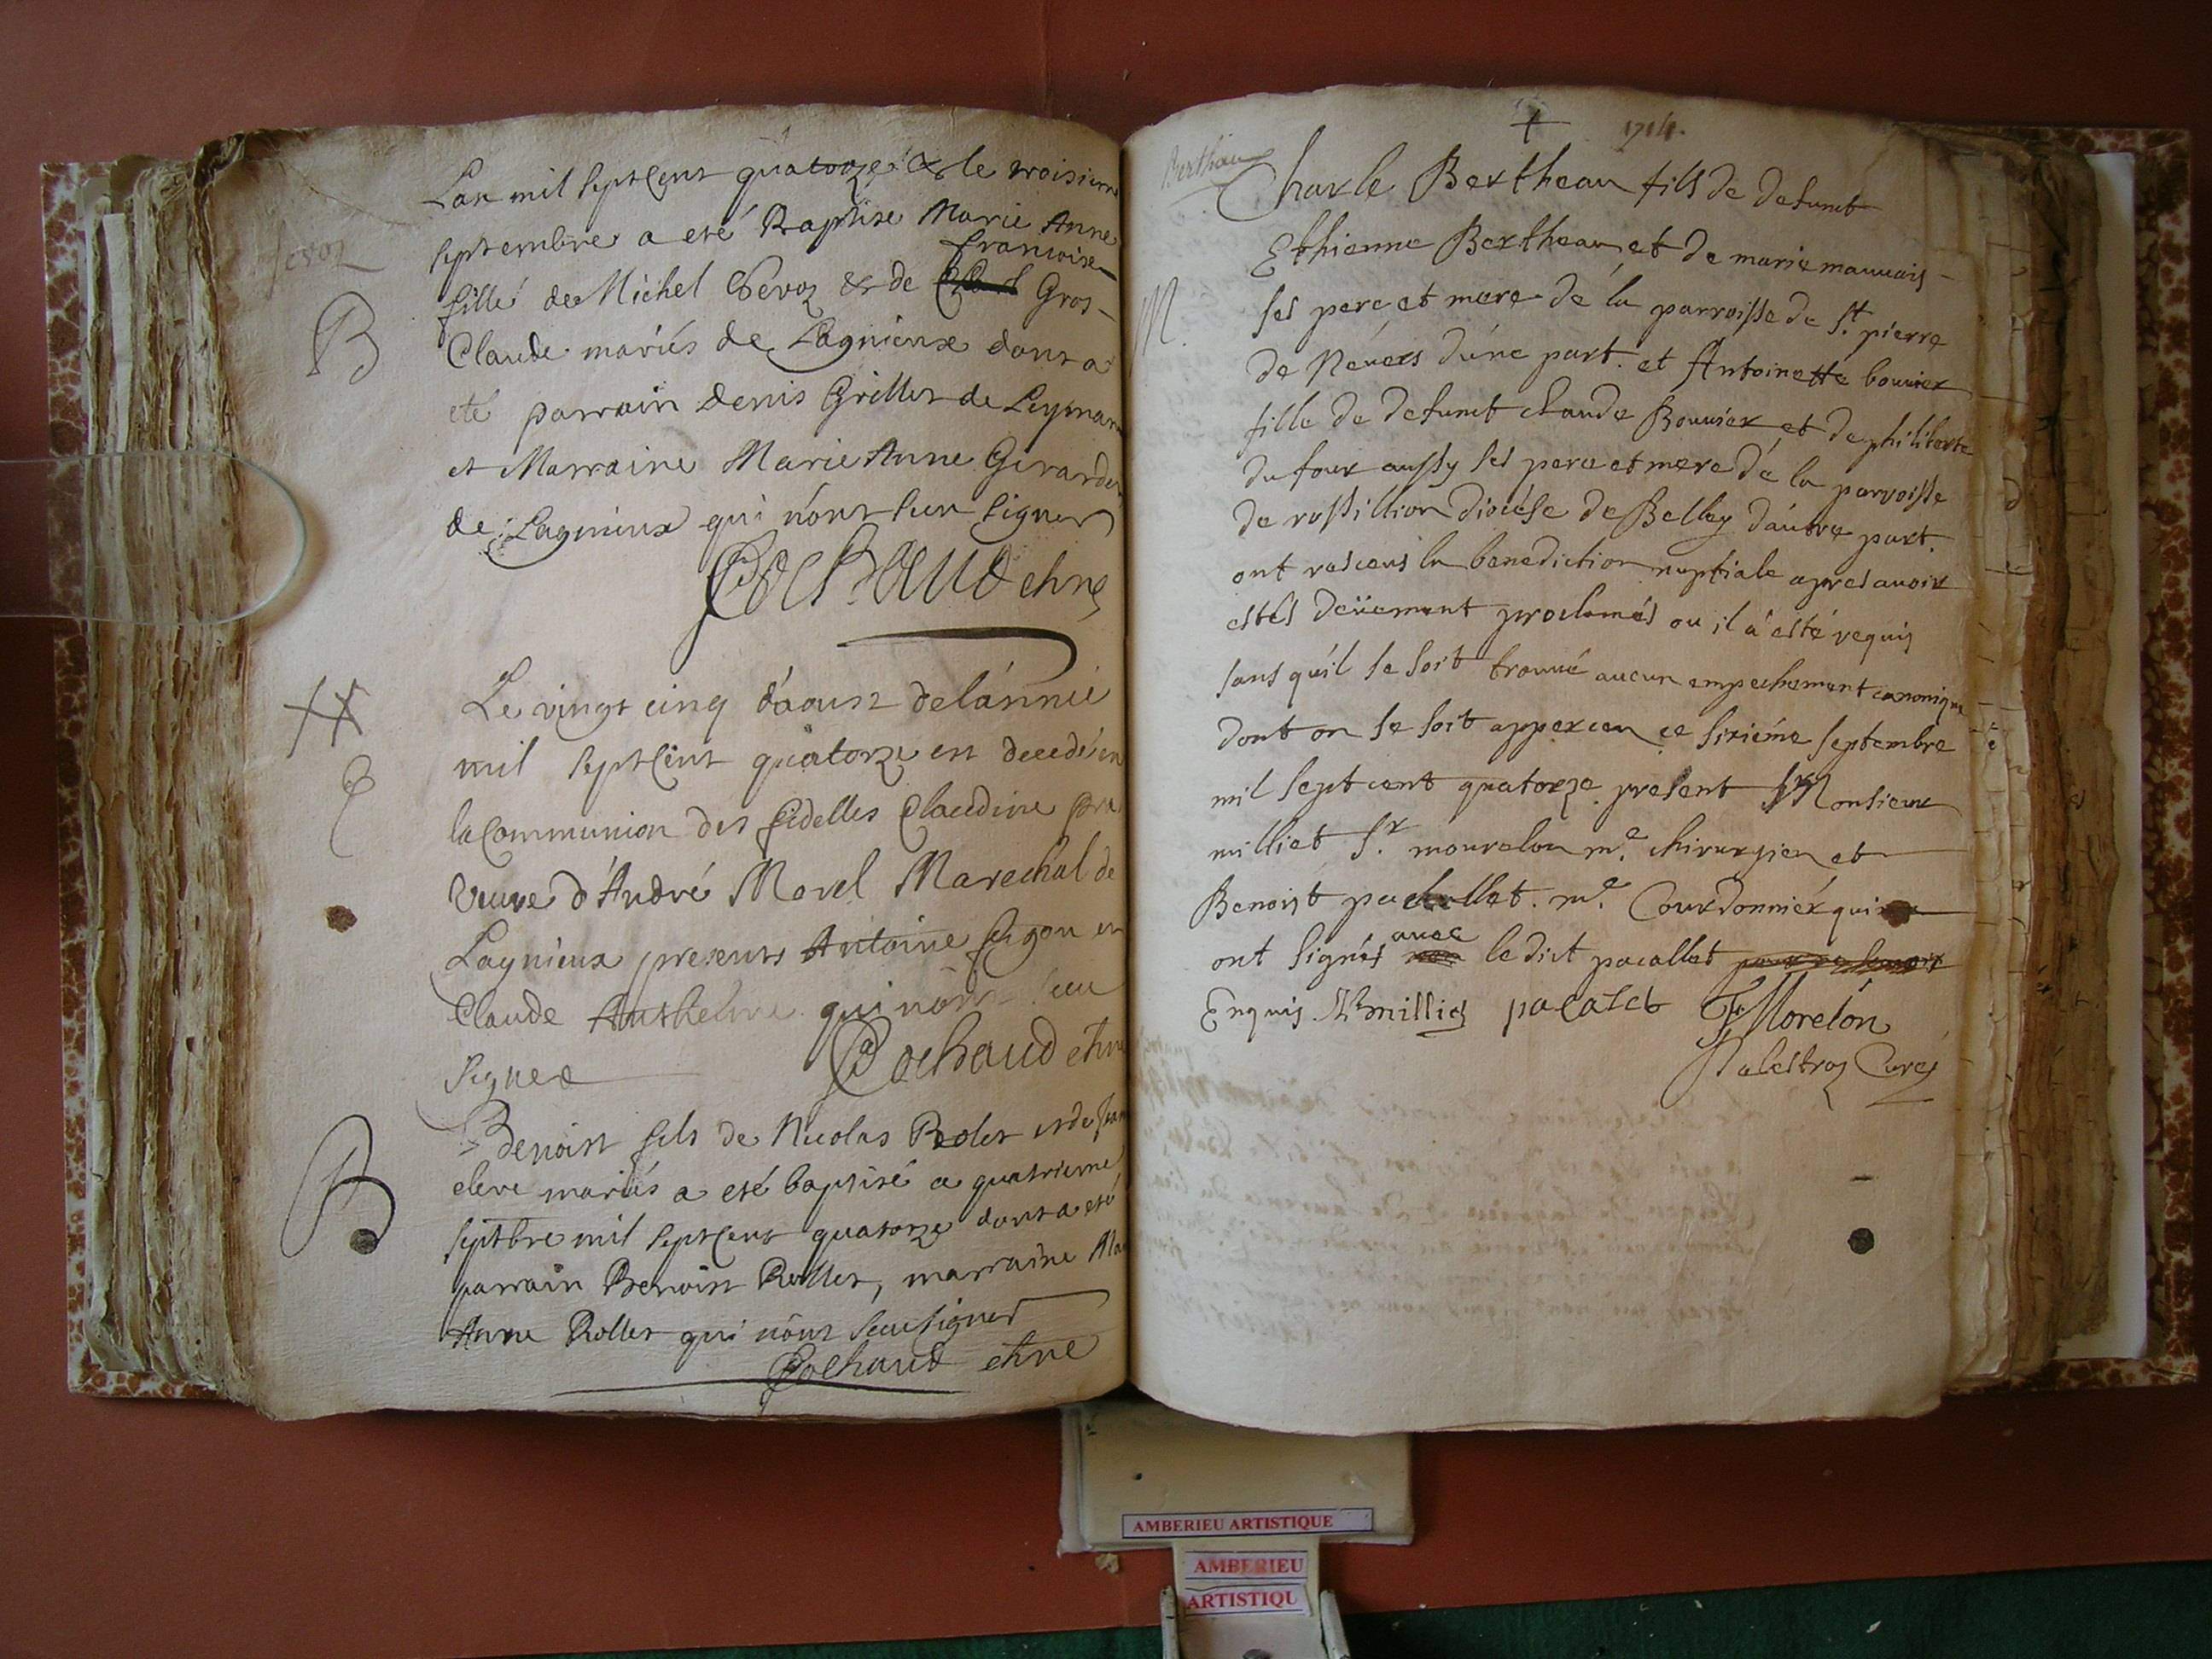 Lan mil Septcent quatorze & le troisieme
Septembre a eté Baptise Marie Anne
francoise
fille de Michel & de Gros
B
Claude mariés de Lagnieux dont a
eté parrain Denis Grillet de Leyman
et Marraine Marie Anne Girardon
de Lagnieux qui n'ont sceu signer
Cochaud
Le vingt cinq d'aoust de l'année
mil septcent quatorze est decedé en
la Communion des fidelles Claudine
Veuve d'André Morel Marechal de
Lagnieux presents Antoine et
Claude Anthelme qui n'ont sceu
signer Cochaud
B
Benoist fils de Nicolas Rolet et de
mariés a eté baptisé a quatrieme
septbre mil septcent quatorze dont a eté
parrain Benoist Rollet, marraine
Anne Rollet qui n'ont sceu signer
Cochaud
1714.
Berthau
Charle Bertheau fils de defunct
Ethienne Bertheau et de marie mauvais
M.
ses pere et mere de la parroisse de St. pierre
de Nevers d'une part. et Antoinette bouvier
fille de defunct claude Bouvier et de philiberte
du four aussy ses pere et mere de la parroisse
de rossillion diocése de Belley d'autre part.
ont resceus la benediction nuptiale apres avoir
estés deüement proclamés ou il a esté requis
sans qu'il se soit trouvé aucun empechement canonique
dont on se soit apperceu ce sixiéme septembre
mil sept cent quatorze present Monsieur
milliet Sr. mourelon me. chirurgien et
Benoist pacallet. me. Courdonniér qui
avec
ont signés le dict pacallet
Enquis milliet pacalet Morelon
Palestroz Curé
AMBERIEU ARTISTIQUE
AMBERIEU
ARTISTIQU